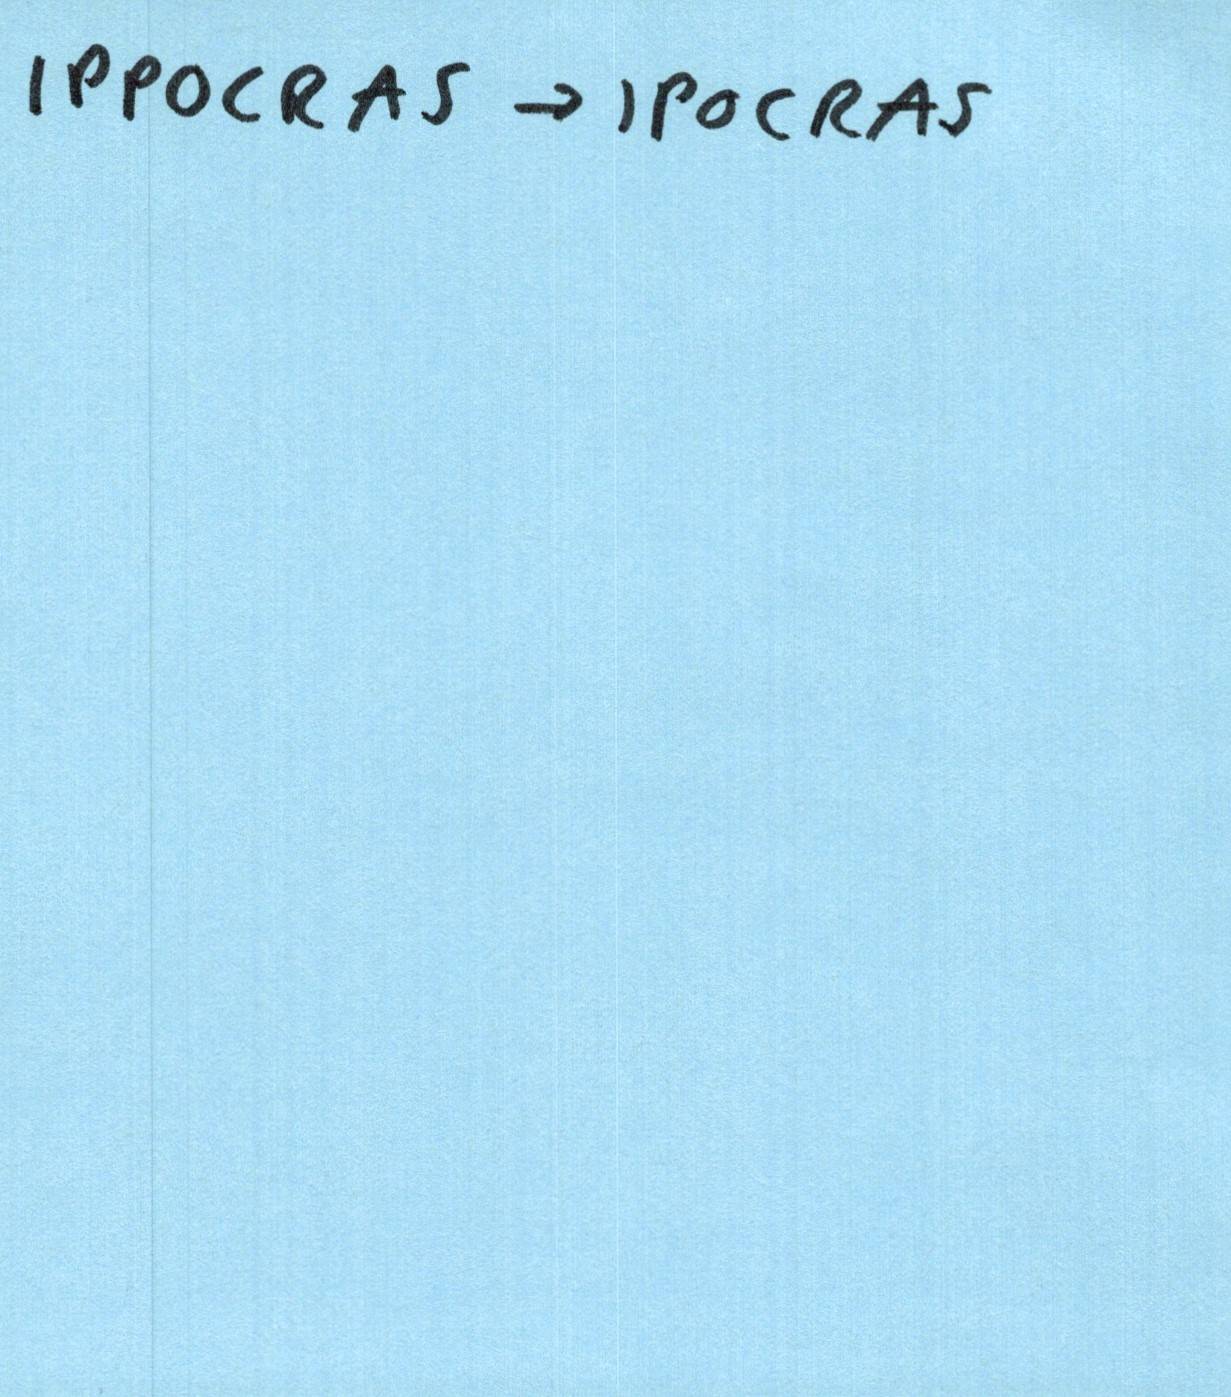 IPPOCRAS → IPOCRAS